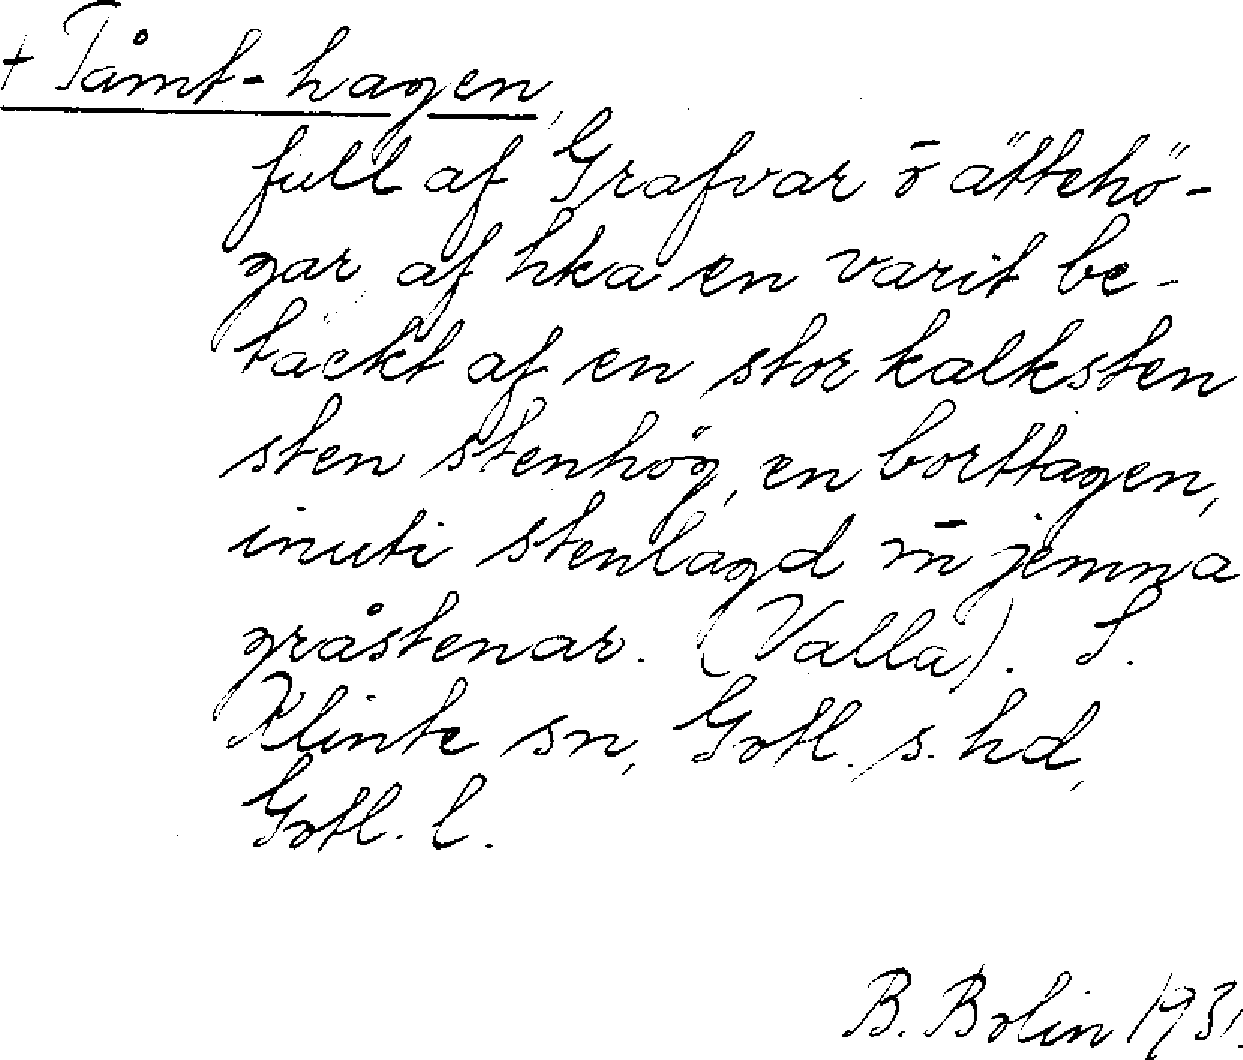 + Tåmt-hagen,
full af Grafvar ō ättehö-
gar, af hka en varit be-
täckt af en stor kalksten
sten stenhög, en borttagen,
inuti stenlagd m̄ jemna
gråstenar. (Valla). S.
Klinte sn, Gotl. s. hd,
Gotl. l.
B. Bolin 1931.